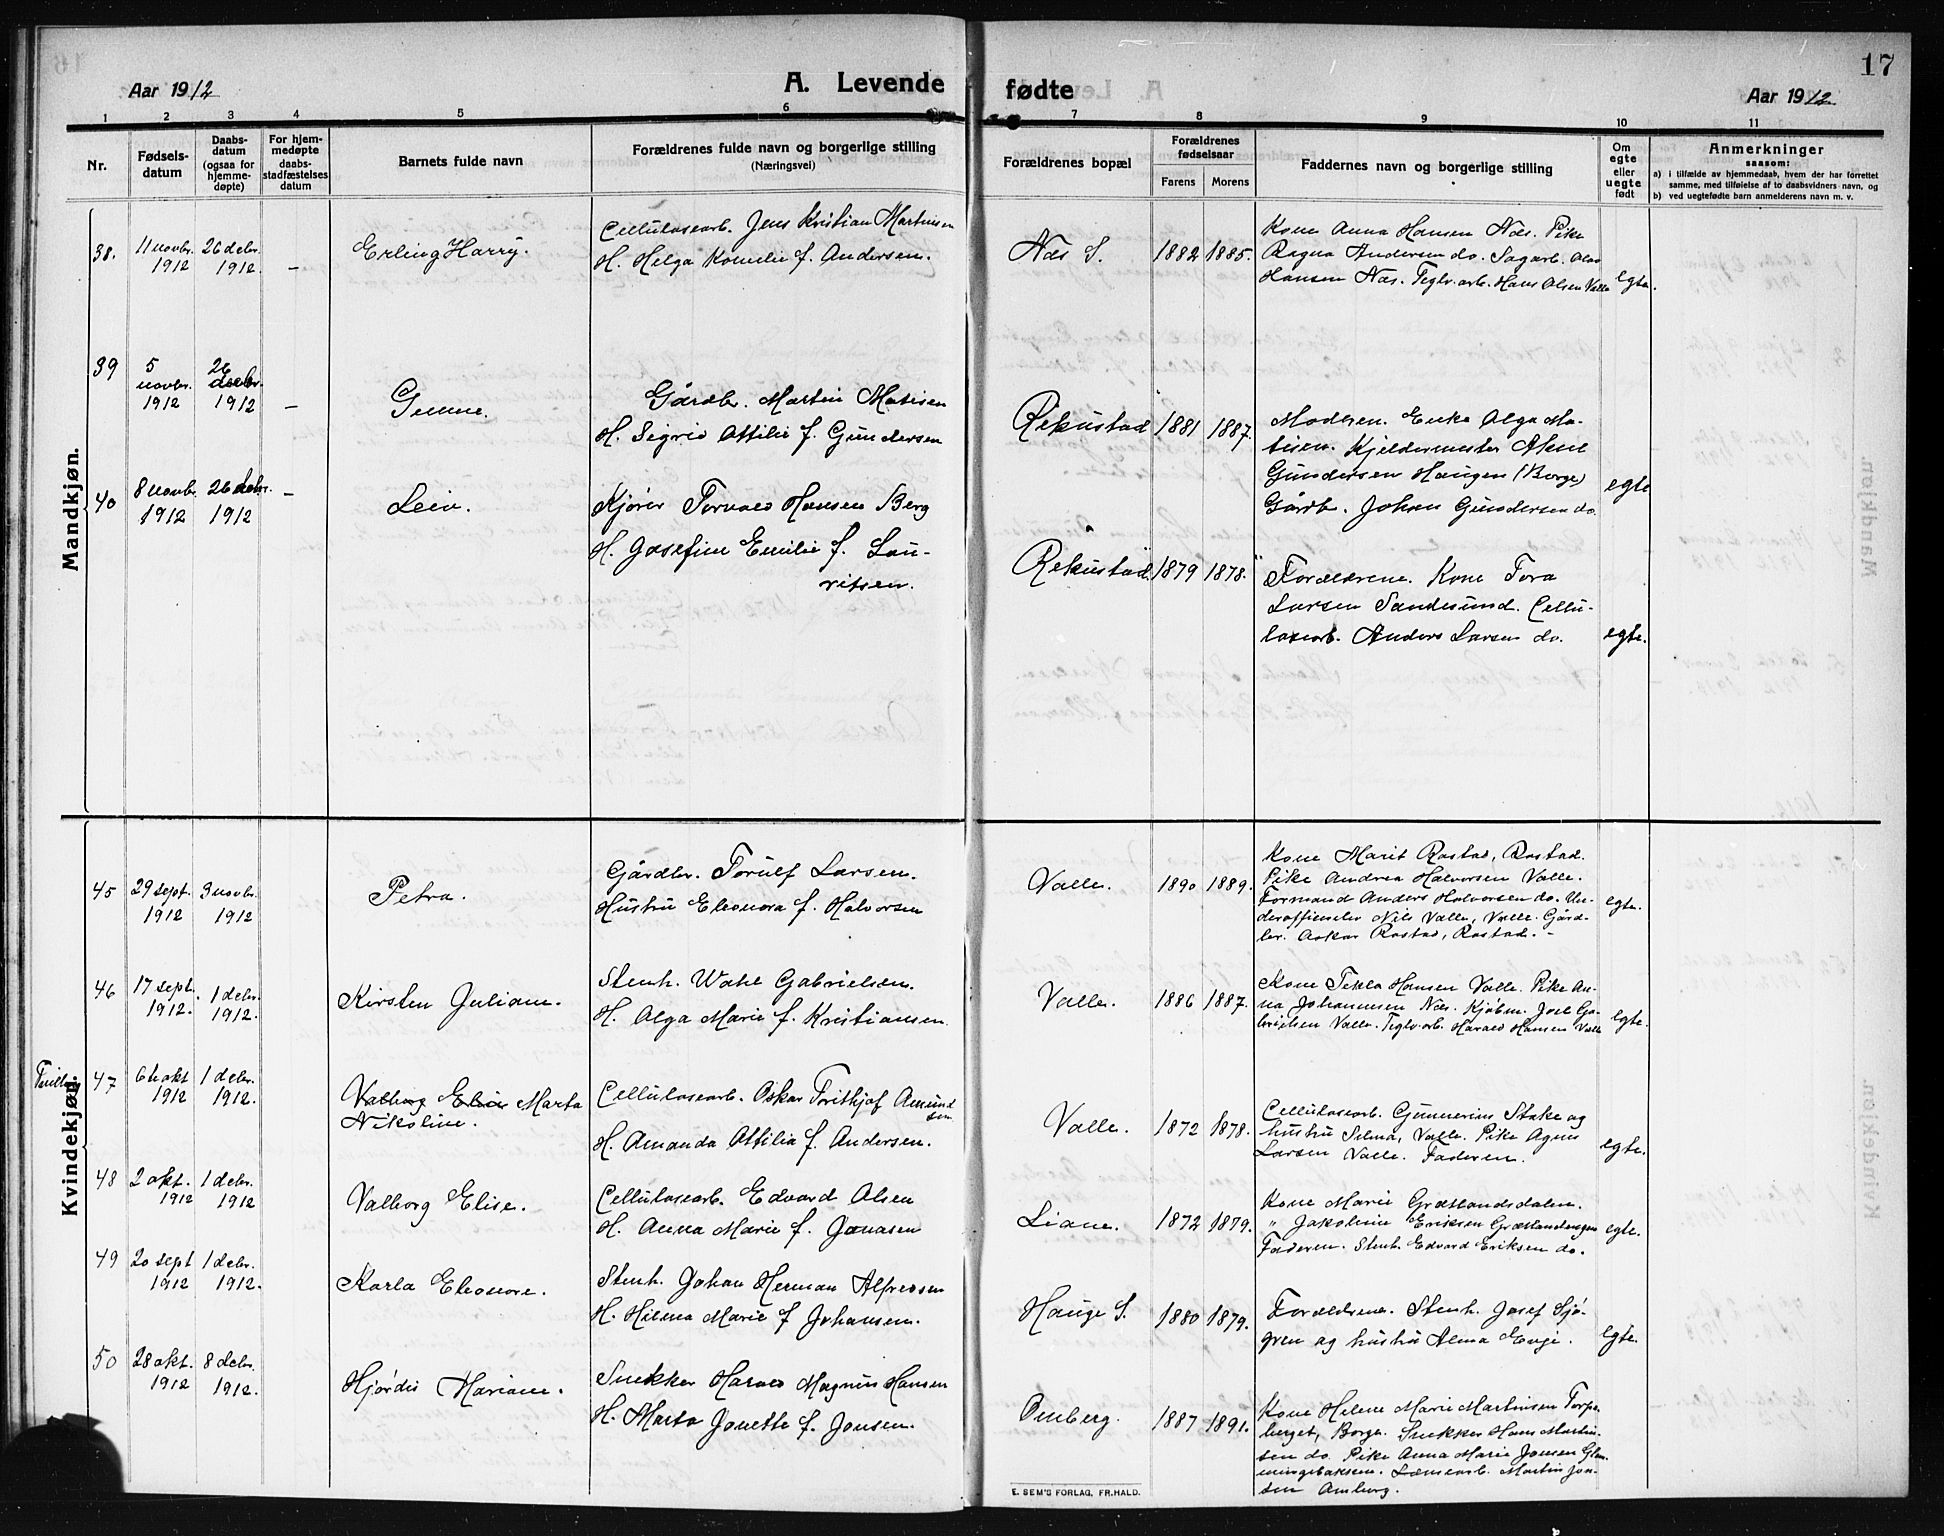 Aar 1912
A. Levende
fødte
17
Aar 1912
1 2 3 4 5 6 7 8 9 10 11
Nr.
Fødsels-
datum
Daabs-
datum
(ogsaa for
hjemme-
døpte)
For hjem-
medøpte
daabs-
stadfæstelses
datum
Barnets fulde navn
Forældrenes fulde navn og borgerlige stilling
(Næringsvei)
Forældrenes bopæl
Forældrenes
fødselsaar
Farens Morens
Faddernes navn og borgerlige stilling
Om
egte
eller
uegte
født
Anmerkninger
saasom:
a) i tilfælde av hjemmedaab, hvem der har forrettet
samme, med tilføielse af to daabsvidners navn, og
b) ved uegtefødte barn anmelderens navn m. v.
Mandkjøn.
38. 11 novbr. 1912 26 debr. 1912. – Erling Harry.
Cellulosearb. Jens Kristian Martinsen
H. Helga Kornelie f. Andersen.
Næs S. 1882 1885.
Kone Anna Hansen Næs. Pike
Ragna Andersen do. Sagarb. Olav
Hansen Næs. Teglv.arb. Hans Olsen Valle
egte.
39 5 novbr. 1912 26 decbr. 1912 – Gunne.
Gårdbr. Martin Matisen
H. Sigrid Ottilie f. Gundersen
Rekustad 1881 1887.
Modren. Enke Olga Ma-
tisen. Kjeldermester Aksel
Gundersen Haugen (Borge)
Gårdb. Johan Gundersen do.
egte
40 8 novbr. 1912 26 debr. 1912 – Leiv.
Kjører Torvald Hansen Berg
H. Josefine Emilie f. Lau-
ritsen.
Rekustad 1879 1878.
Forældrene. Kone Tora
Larsen Sandesund. Cellu-
losearb. Anders Larsen do.
egte.
Kvindekjøn.
45 29 sept. 1912 3 novbr. 1912 Petra.
Gårdbr. Torulf Larsen.
Hustru Eleonora f. Halvorsen
Valle. 1890 1889.
Kone Marit Rostad, Rostad.
Pike Andrea Halvorsen Valle.
Formand Anders Halvorsen do. Un-
derofficier Nils Valle, Valle. Gård-
br. Oskar Rostad, Rostad. -
egte.
46 17 sept. 1912. 1 debr. 1912. Kirsten Juliane.
Stenh. Wahl Gabrielsen.
H. Olga Marie f. Kristiansen.
Valle. 1886 1887.
Kone Tekla Hansen Valle. Pike An-
na Johannesen Næs. Kjøbm. Joel Ga-
brielsen Valle. Teglv.arb. Harald Hansen Valle
egte.
47 6 okt 1912 1 debr. 1912. Valborg Elise Marta
Nikoline.
Celluloosearb. Oskar Fritthjof Amund
sen
H. Amanda Ottilia f. Andersen.
Valle. 1872 1878.
Celluloosearb. Gunnerius Stake og
hustru Selma, Valle. Pike Agnes
Larsen Valle. Faderen.
egte.
48 2 okt. 1912 1 debr. 1912 Valborg Elise.
Celluloosearb. Edvard Olsen
H. Anna Marie f. Jonasen
Liane. 1872 1879.
Kone Marie Græslandsdalen.
" Jakobine Eriksen Græslandsengen
Faderen. Stenh. Edvard Eriksen do.
egte.
49 20 sept 1912 1 debr. 1912. Karla Eleonore.
Stenh. Johan Herman Alfredsen
H. Hilma Marie f. Johansen.
Hauge S. 1880 1879.
Forældrene. Stenh. Josef Sjø-
gren og hustru Alma Enge.
egte.
50 28 okt. 1912 8 debr. 1912. Hjørdis Mariane.
Snekker Harald Magnus Hansen
H. Marta Jonette f. Jonsen.
Omberg. 1887 1891.
Kone Helene Marie Martinsen Torpe-
berget, Borge. Snekker Hans Martin-
sen do. Pike Anna Marie Jonsen Glem-
mingebakken. Martin Jon-
sen Omberg.
E. SEM'S FORLAG, FR.HALD.